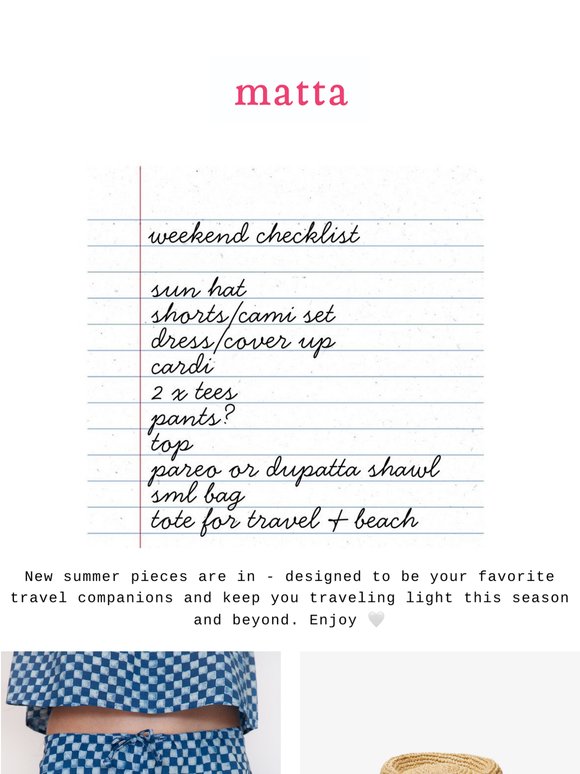 matta
weekend checklist
sun hat
shorts/cami set
dress/cover up
cardi
2 x tees
pants?
top
pareo or dupatta shawl
sml bag
tote for travel + beach
New summer pieces are in - designed to be your favorite
travel companions and keep you traveling light this season
and beyond. Enjoy 🤍